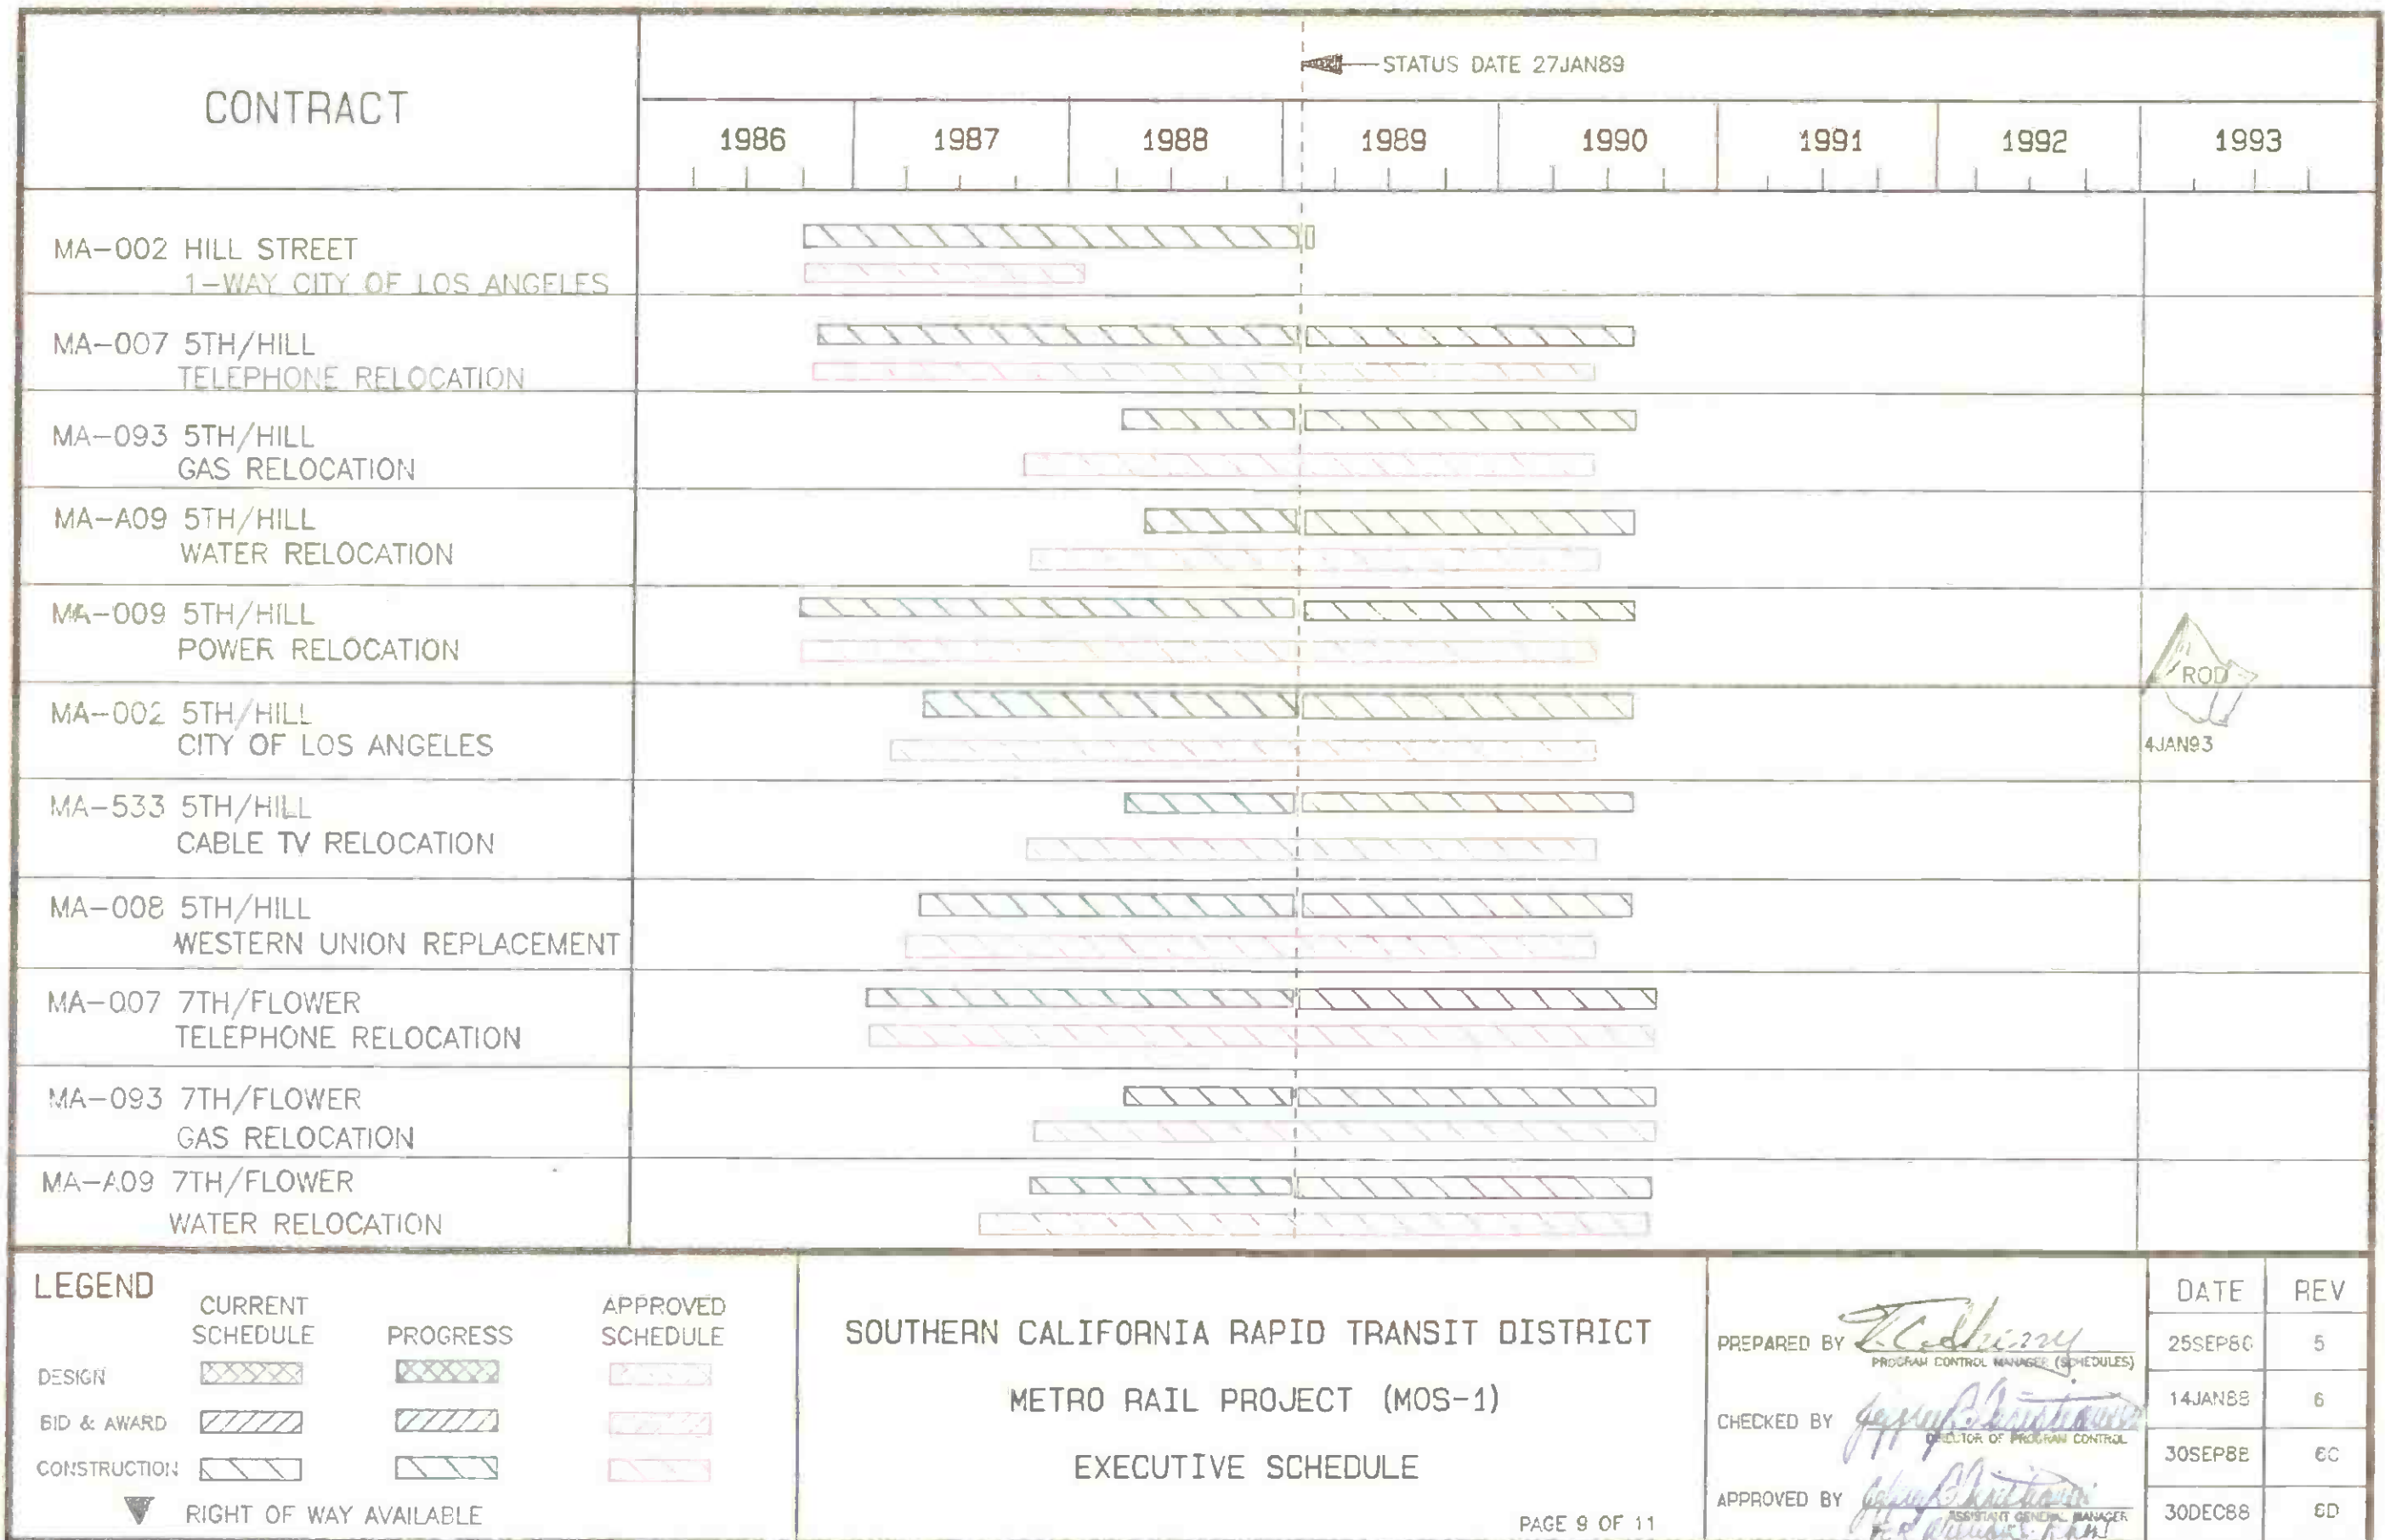 CONTRACT
STATUS DATE 27JAN89
1986 1987 1988 1989 1990 1991 1992 1993
MA-002 HILL STREET
1-WAY CITY OF LOS ANGELES
MA-007 5TH/HILL
TELEPHONE RELOCATION
MA-093 5TH/HILL
GAS RELOCATION
MA-A09 5TH/HILL
WATER RELOCATION
MA-009 5TH/HILL
POWER RELOCATION
ROD
MA-002 5TH/HILL
CITY OF LOS ANGELES
4JAN93
MA-533 5TH/HILL
CABLE TV RELOCATION
MA-008 5TH/HILL
WESTERN UNION REPLACEMENT
MA-007 7TH/FLOWER
TELEPHONE RELOCATION
MA-093 7TH/FLOWER
GAS RELOCATION
MA-A09 7TH/FLOWER
WATER RELOCATION
LEGEND
CURRENT SCHEDULE
PROGRESS
APPROVED SCHEDULE
DESIGN
BID & AWARD
CONSTRUCTION
RIGHT OF WAY AVAILABLE
SOUTHERN CALIFORNIA RAPID TRANSIT DISTRICT
METRO RAIL PROJECT (MOS-1)
EXECUTIVE SCHEDULE
PAGE 9 OF 11
PREPARED BY
PROGRAM CONTROL MANAGER (SCHEDULES)
CHECKED BY
DIRECTOR OF PROGRAM CONTROL
APPROVED BY
ASSISTANT GENERAL MANAGER
DATE REV
25SEP86 5
14JAN88 6
30SEP88 6C
30DEC88 6D